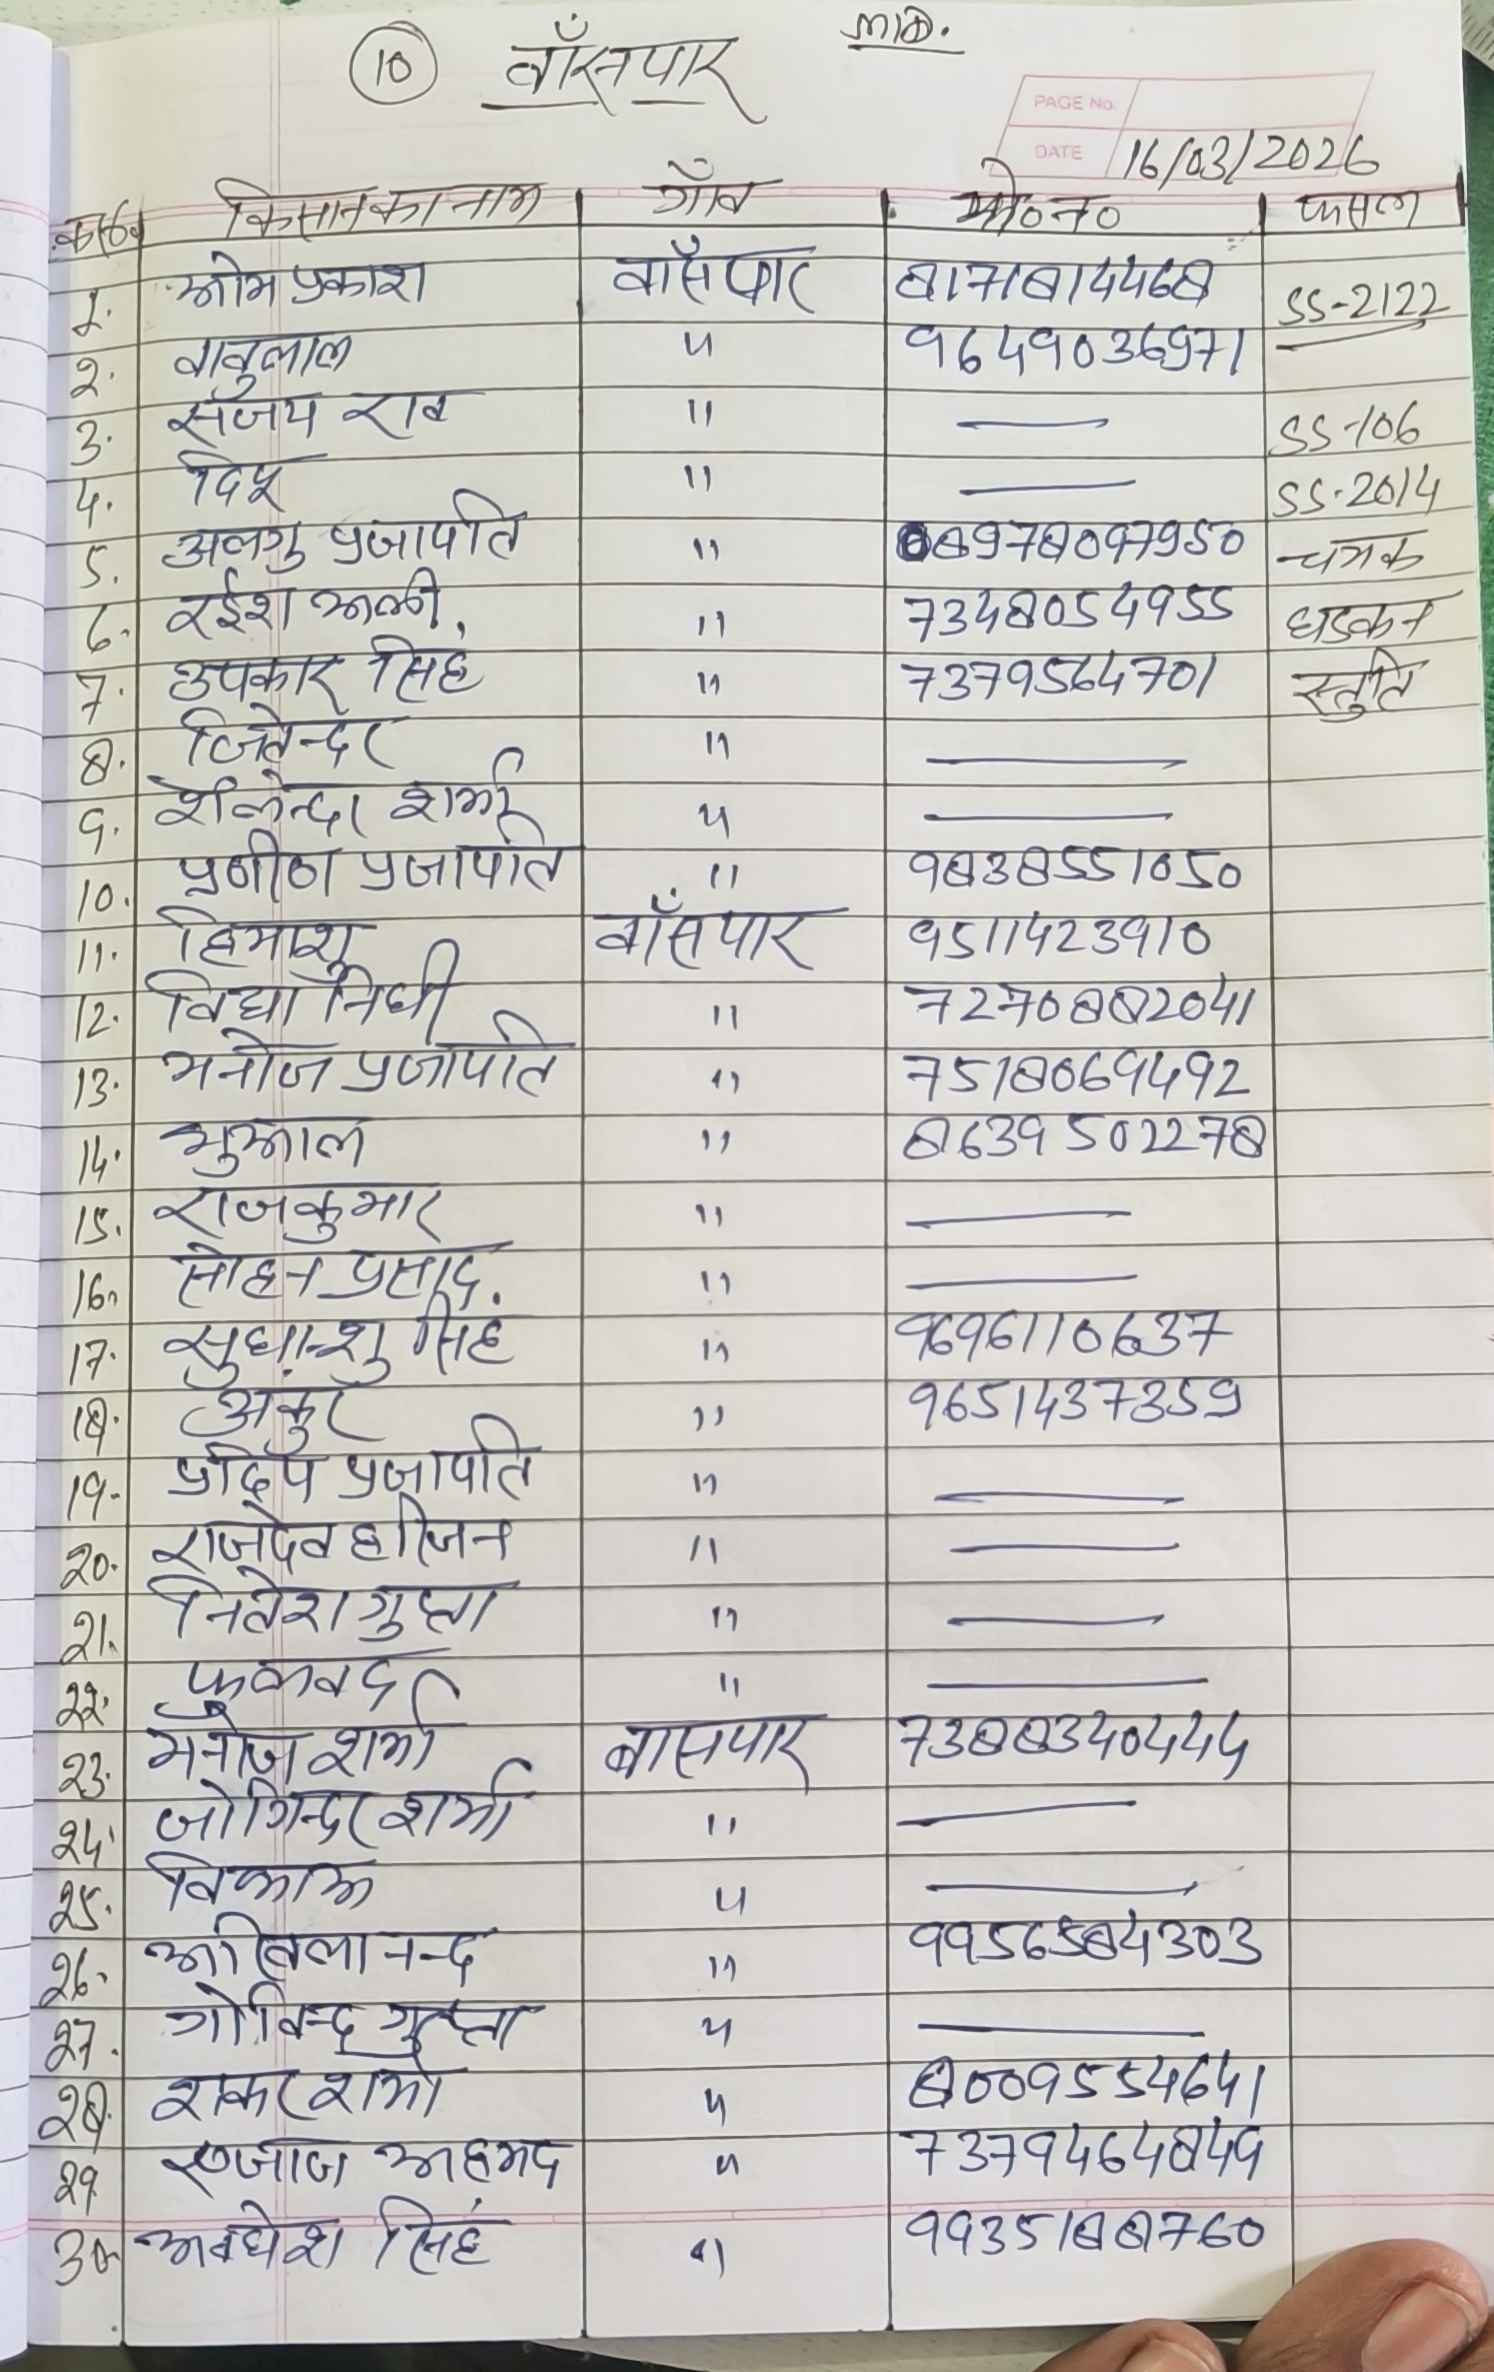 10 बाँसपार
PAGE No.
DATE 16/03/2026
क्र०सं० किसान का नाम गाँव मो०न० फसल
1. ओम प्रकाश बाँसपार 8171814468 SS-2122
2. बाबुलाल " 9649036971
3. संजय राव " — SS-106
4. दिपू " — SS-2014
5. अलगु प्रजापति " 08978097950 चमक
6. रईश अली " 7348054955 धडकन
7. उपकार सिंह " 7379564701 स्तुति
8. जितेन्दर " —
9. शैलेन्दर शर्मा " —
10. प्रवीण प्रजापति " 9838551050
11. हिमाशु बाँसपार 9511423910
12. विद्या निधी " 7270882041
13. मनोज प्रजापति " 7518069492
14. भुआल " 8639502278
15. राजकुमार " —
16. सोहन प्रसाद " —
17. सुधान्शु सिंह " 9696110637
18. अंकुर " 9651437359
19. प्रदिप प्रजापति " —
20. राजदेव हरिजन " —
21. नितेश गुप्ता " —
22. " —
23. मनोज शर्मा बासपार 7388340444
24. जोगिन्दर शर्मा " —
25. " —
26. अखिलानन्द " 9956584303
27. गोविन्द गुप्ता " —
28. शंकर शर्मा " 8009554641
29. एजाज अहमद " 7379464849
30. अवधेश सिंह " 9935188760